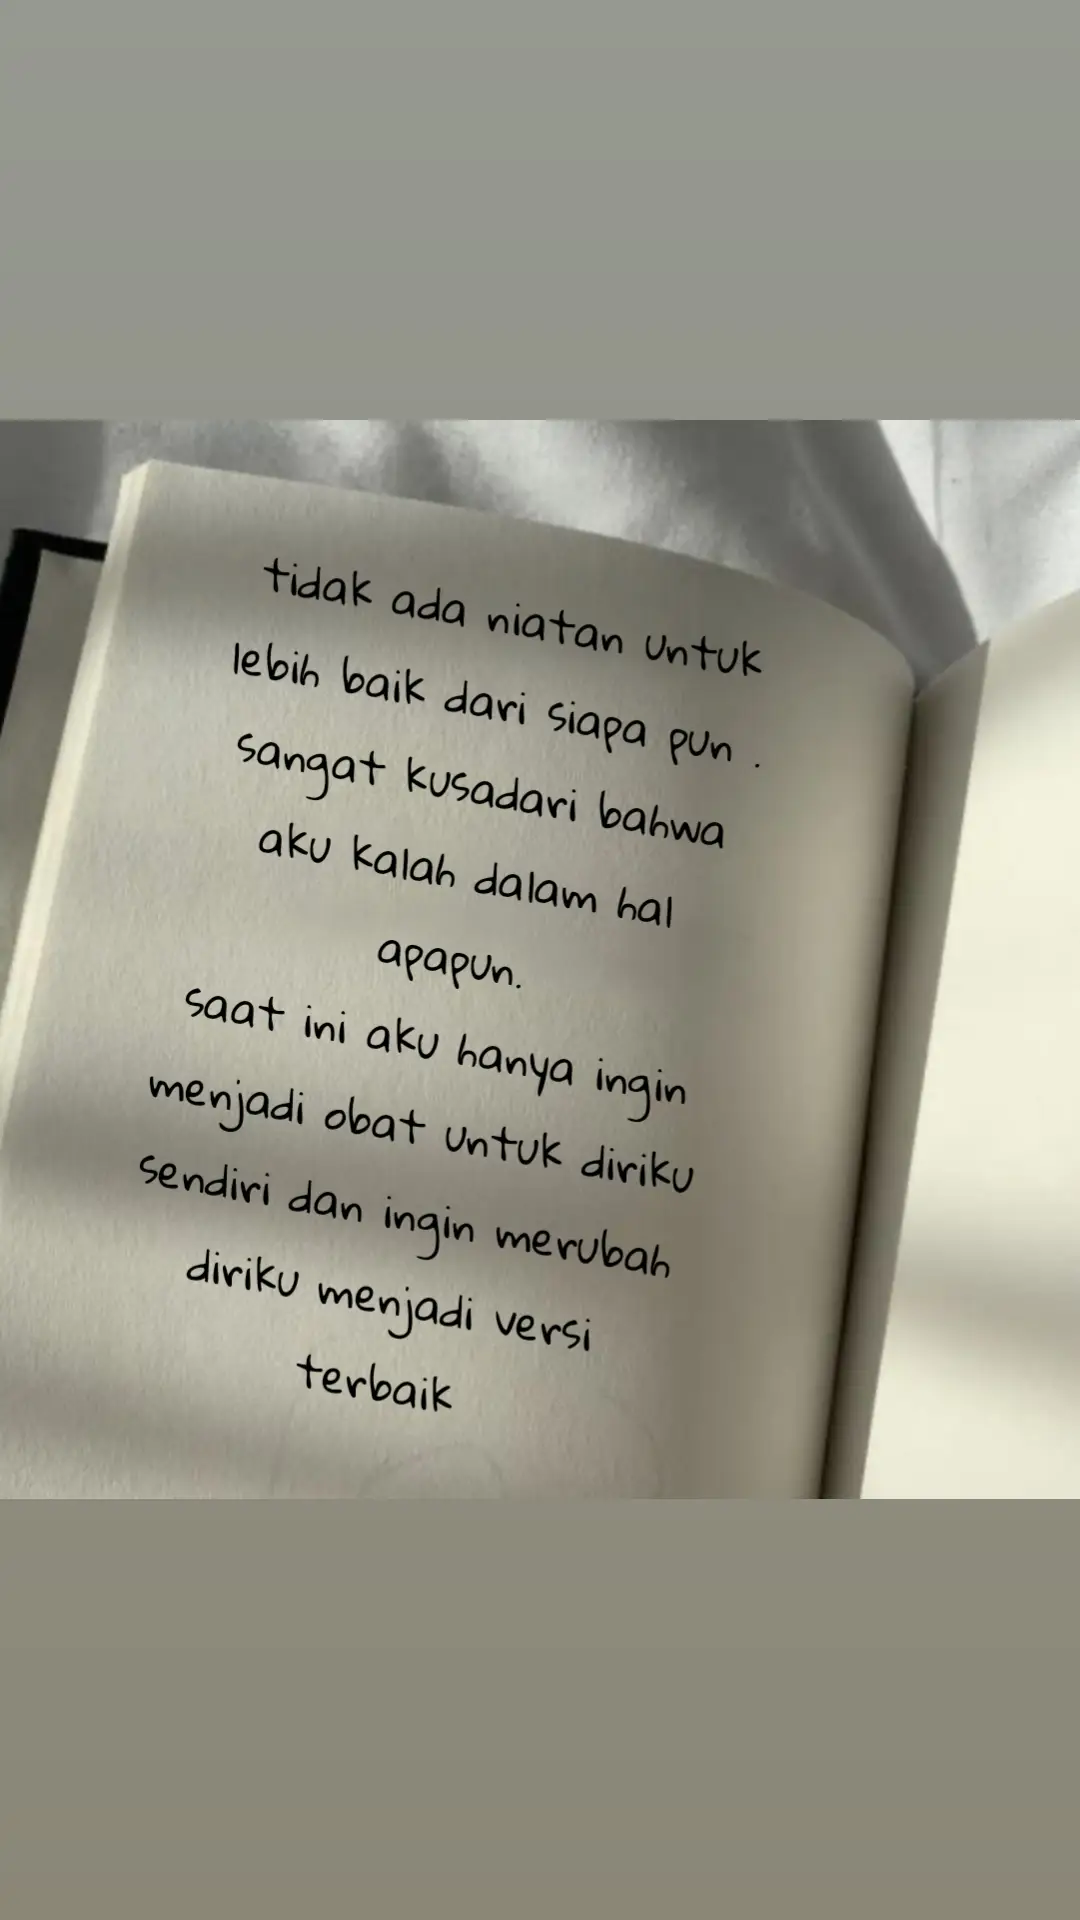 tidak ada niatan untuk
lebih baik dari siapa pun .
sangat kusadari bahwa
aku kalah dalam hal
apapun.
saat ini aku hanya ingin
menjadi obat untuk diriku
sendiri dan ingin merubah
diriku menjadi versi
terbaik